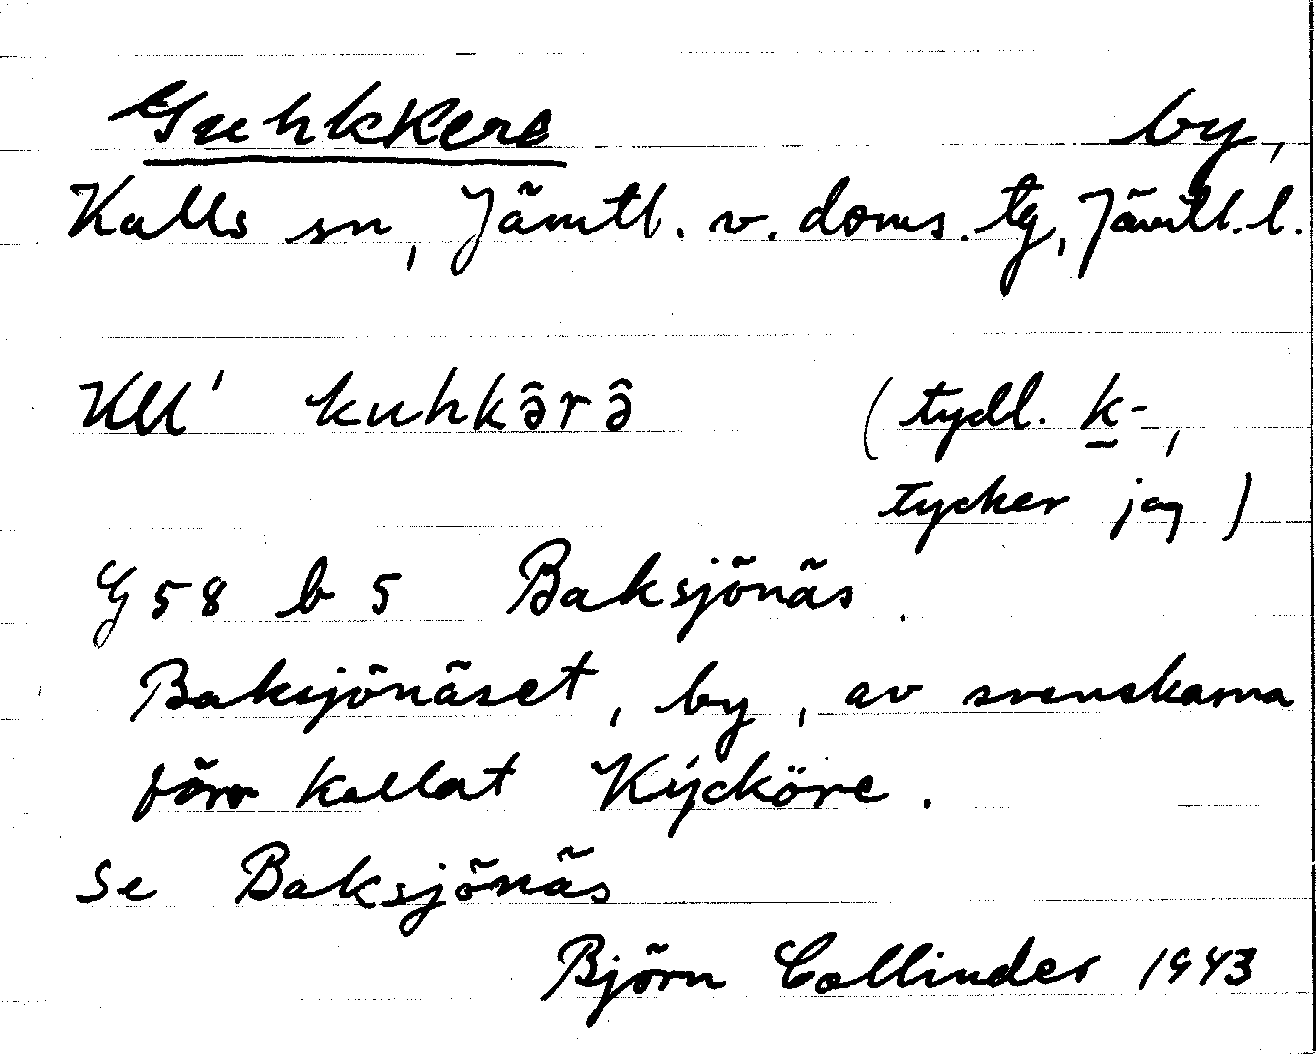 Guhkkere by,
Kalls sn, Jämtl. v. doms. tg, Jämtl. l.
KU' kuhkə̂rə̂ (tydl. k-,
tycker jag)
G 58 b 5 Baksjönäs.
Baksjönäset, by, av svenskarna
förr kallat Kýcköre.
Se Baksjönäs
Björn Collinder 1943